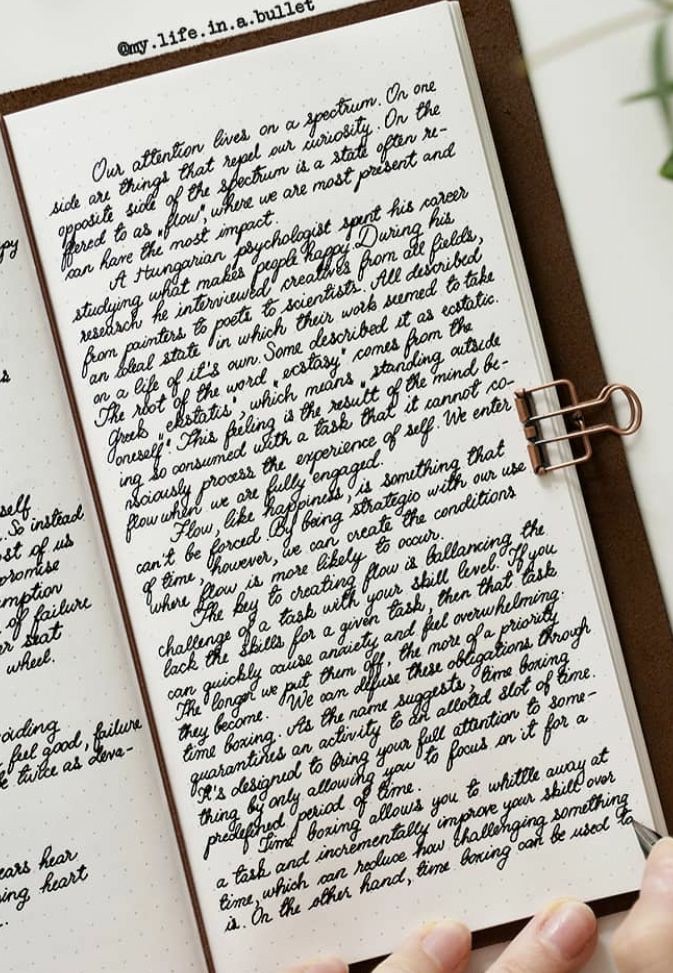 @my.life.in.a.bullet
Our attention lives on a spectrum. On one
side are things that repel our curiosity. On the
opposite side of the spectrum is a state often re-
ffered to as "flow", where we are most present and
can have the most impact.
A Hungarian psychologist spent his career
studying what makes people happy. During his
research he interviewed creatives from all fields,
from painters to poets to scientists. All described
an ideal state in which their work seemed to take
on a life of it's own. Some described it as ecstatic.
The root of the word "ecstasy" comes from the
Greek "ekstatis", which means "standing outside
oneself". This feeling is the result of the mind be-
ing so consumed with a task that it cannot co-
nsciously process the experience of self. We enter
flow when we are fully engaged.
Flow, like happiness, is something that
can't be forced. By being strategic with our use
of time, however, we can create the conditions
where flow is more likely to occur.
The key to creating flow is ballancing the
challenge of a task with your skill level. If you
lack the skills for a given task, then that task
can quickly cause anxiety and feel overwhelming.
The longer we put them off, the more of a priority
they become. We can defuse these obligations through
time boxing. As the name suggests, time boxing
quarantines an activity to an alloted slot of time.
It's designed to bring your full attention to some-
thing by only allowing you to focus on it for a
predefined period of time.
Time boxing allows you to whittle away at
a task and incrementally improve your skill over
time, which can reduce how challenging something
is. On the other hand, time boxing can be used to
self
. So instead
ost of us
promise
mption
of failure
er seat
wheel.
oiding
feel good, failure
be twice as deva-
ears hear
sing heart